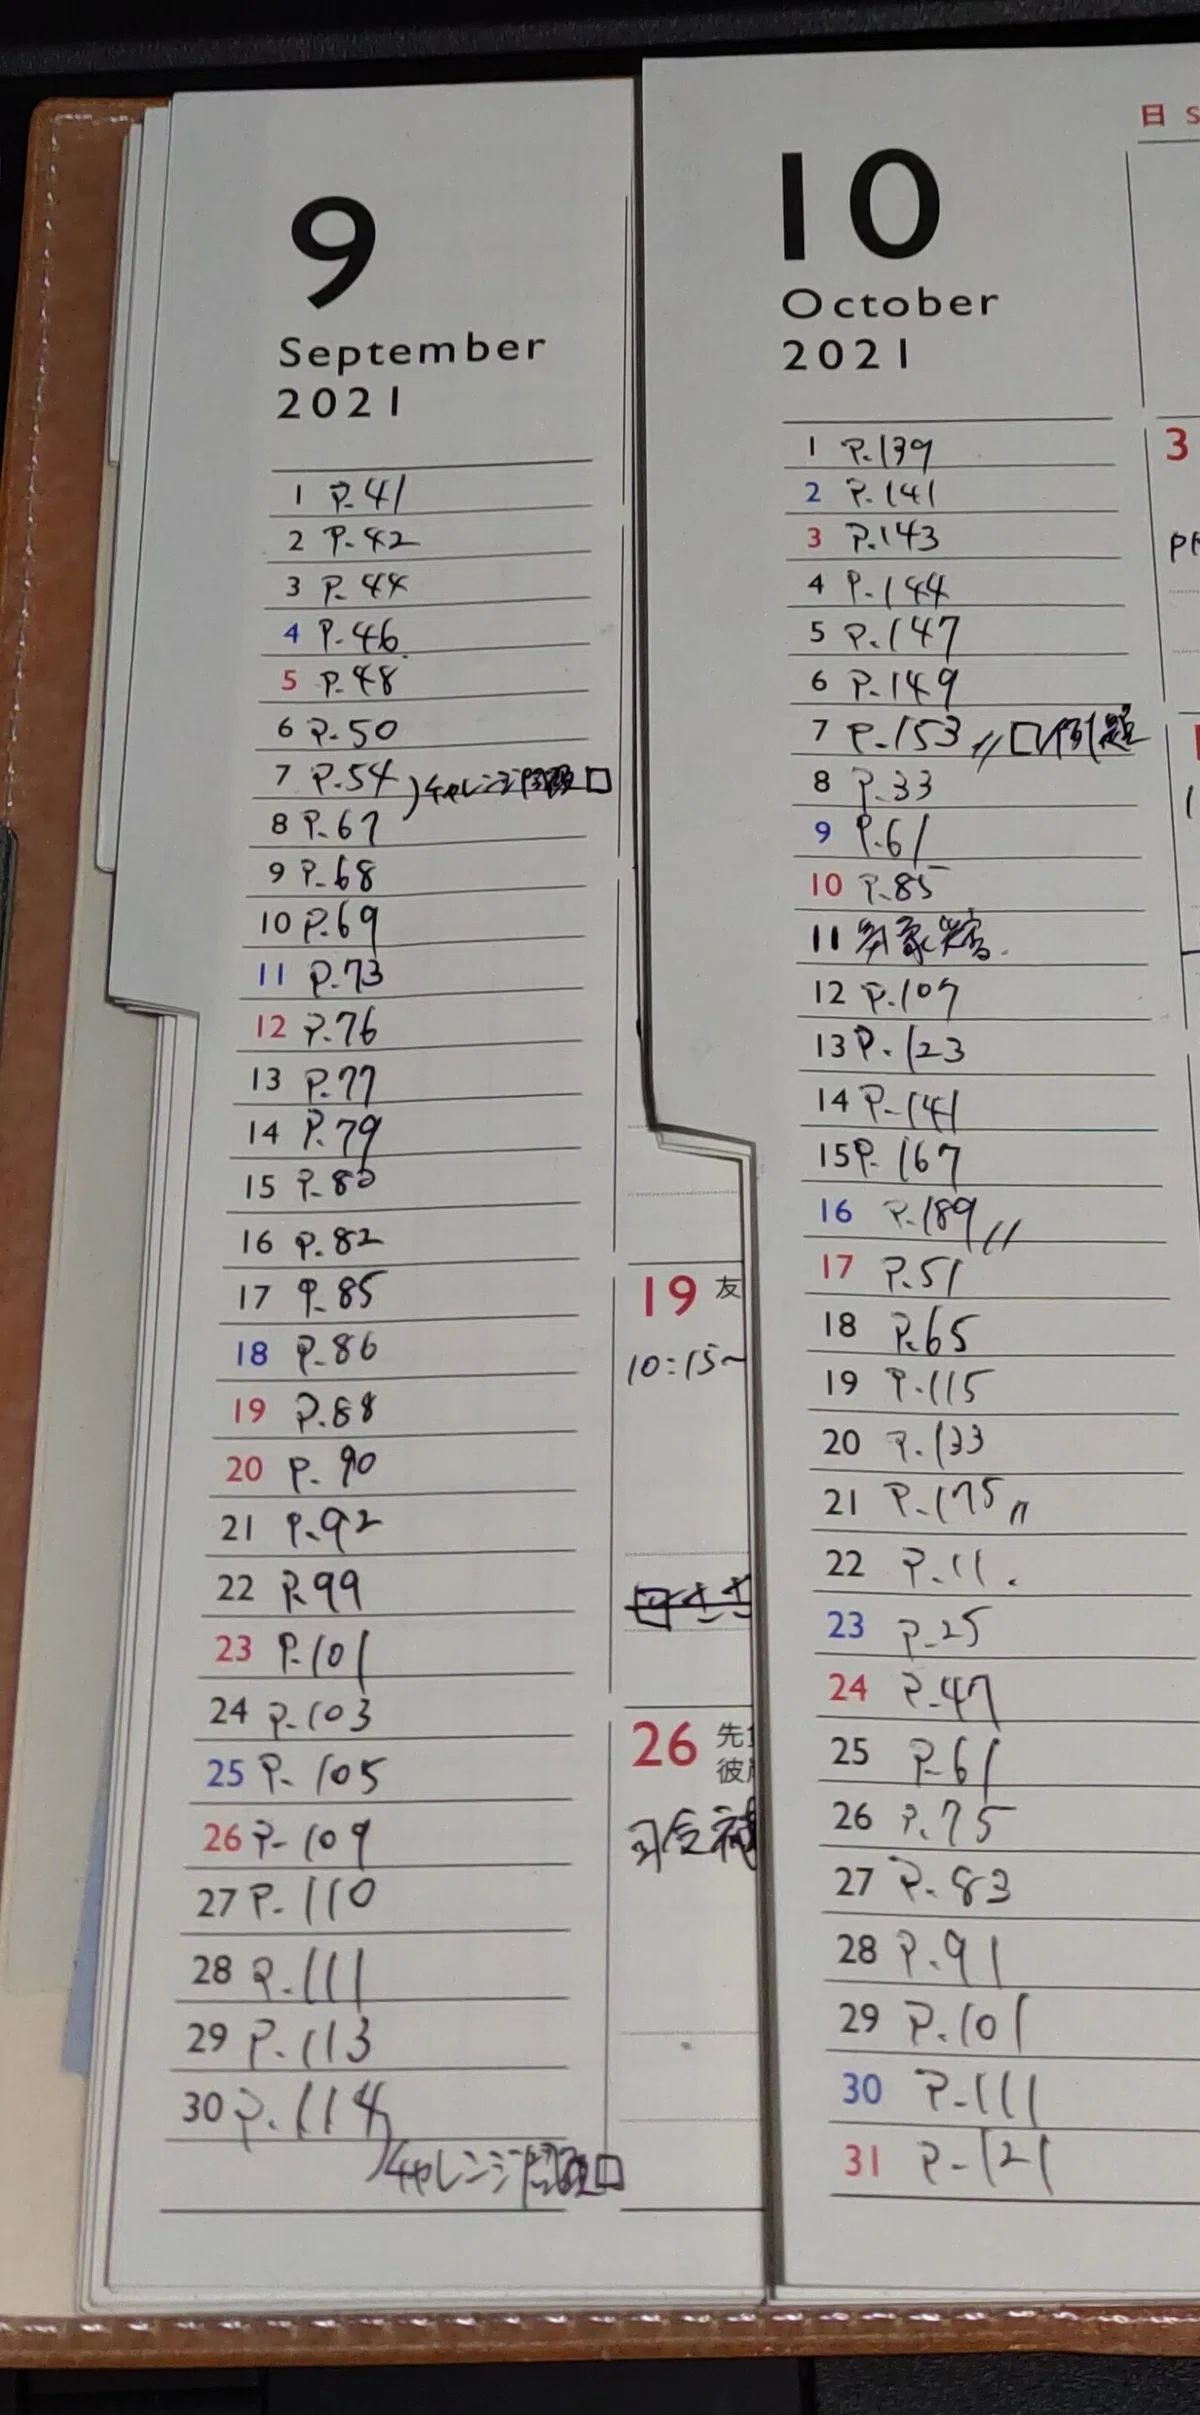 9
September
2021
1 P.41
2 P.42
3 P.44
4 P.46
5 P.48
6 P.50
7 P.54
チャレンジ問題 □
8 P.67
9 P.68
10 P.69
11 P.73
12 P.76
13 P.77
14 P.79
15 P.80
16 P.82
17 P.85
18 P.86
19 P.88
20 P.90
21 P.92
22 P.99
23 P.101
24 P.103
25 P.105
26 P.109
27 P.110
28 P.111
29 P.113
30 P.114
チャレンジ問題 □
19 友
10:15~
26 先
彼
10
October
2021
日 S
1 P.139
2 P.141
3 P.143
4 P.144
5 P.147
6 P.149
7 P.153 〃 □例題
8 P.33
9 P.61
10 P.85
11
12 P.107
13 P.123
14 P.141
15 P.167
16 P.189 〃
17 P.51
18 P.65
19 P.115
20 P.133
21 P.175 〃
22 P.11.
23 P.25
24 P.47
25 P.61
26 P.75
27 P.83
28 P.91
29 P.101
30 P.111
31 P.121
3